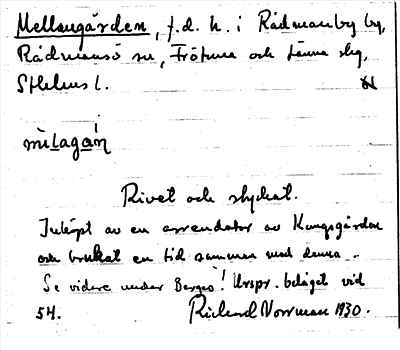 Mellangården, f.d. h. i Rådmanby by,
Rådmansö sn, Frötuna och Länna slg,
Sthlms l.
mìlagán
Rivet och styckat.
Inköpt av en arrendator av Kungsgården
och brukat en tid samman med denna.
Se vidare under Berges! Urspr. beläget vid
54. Richard Norrman 1930.